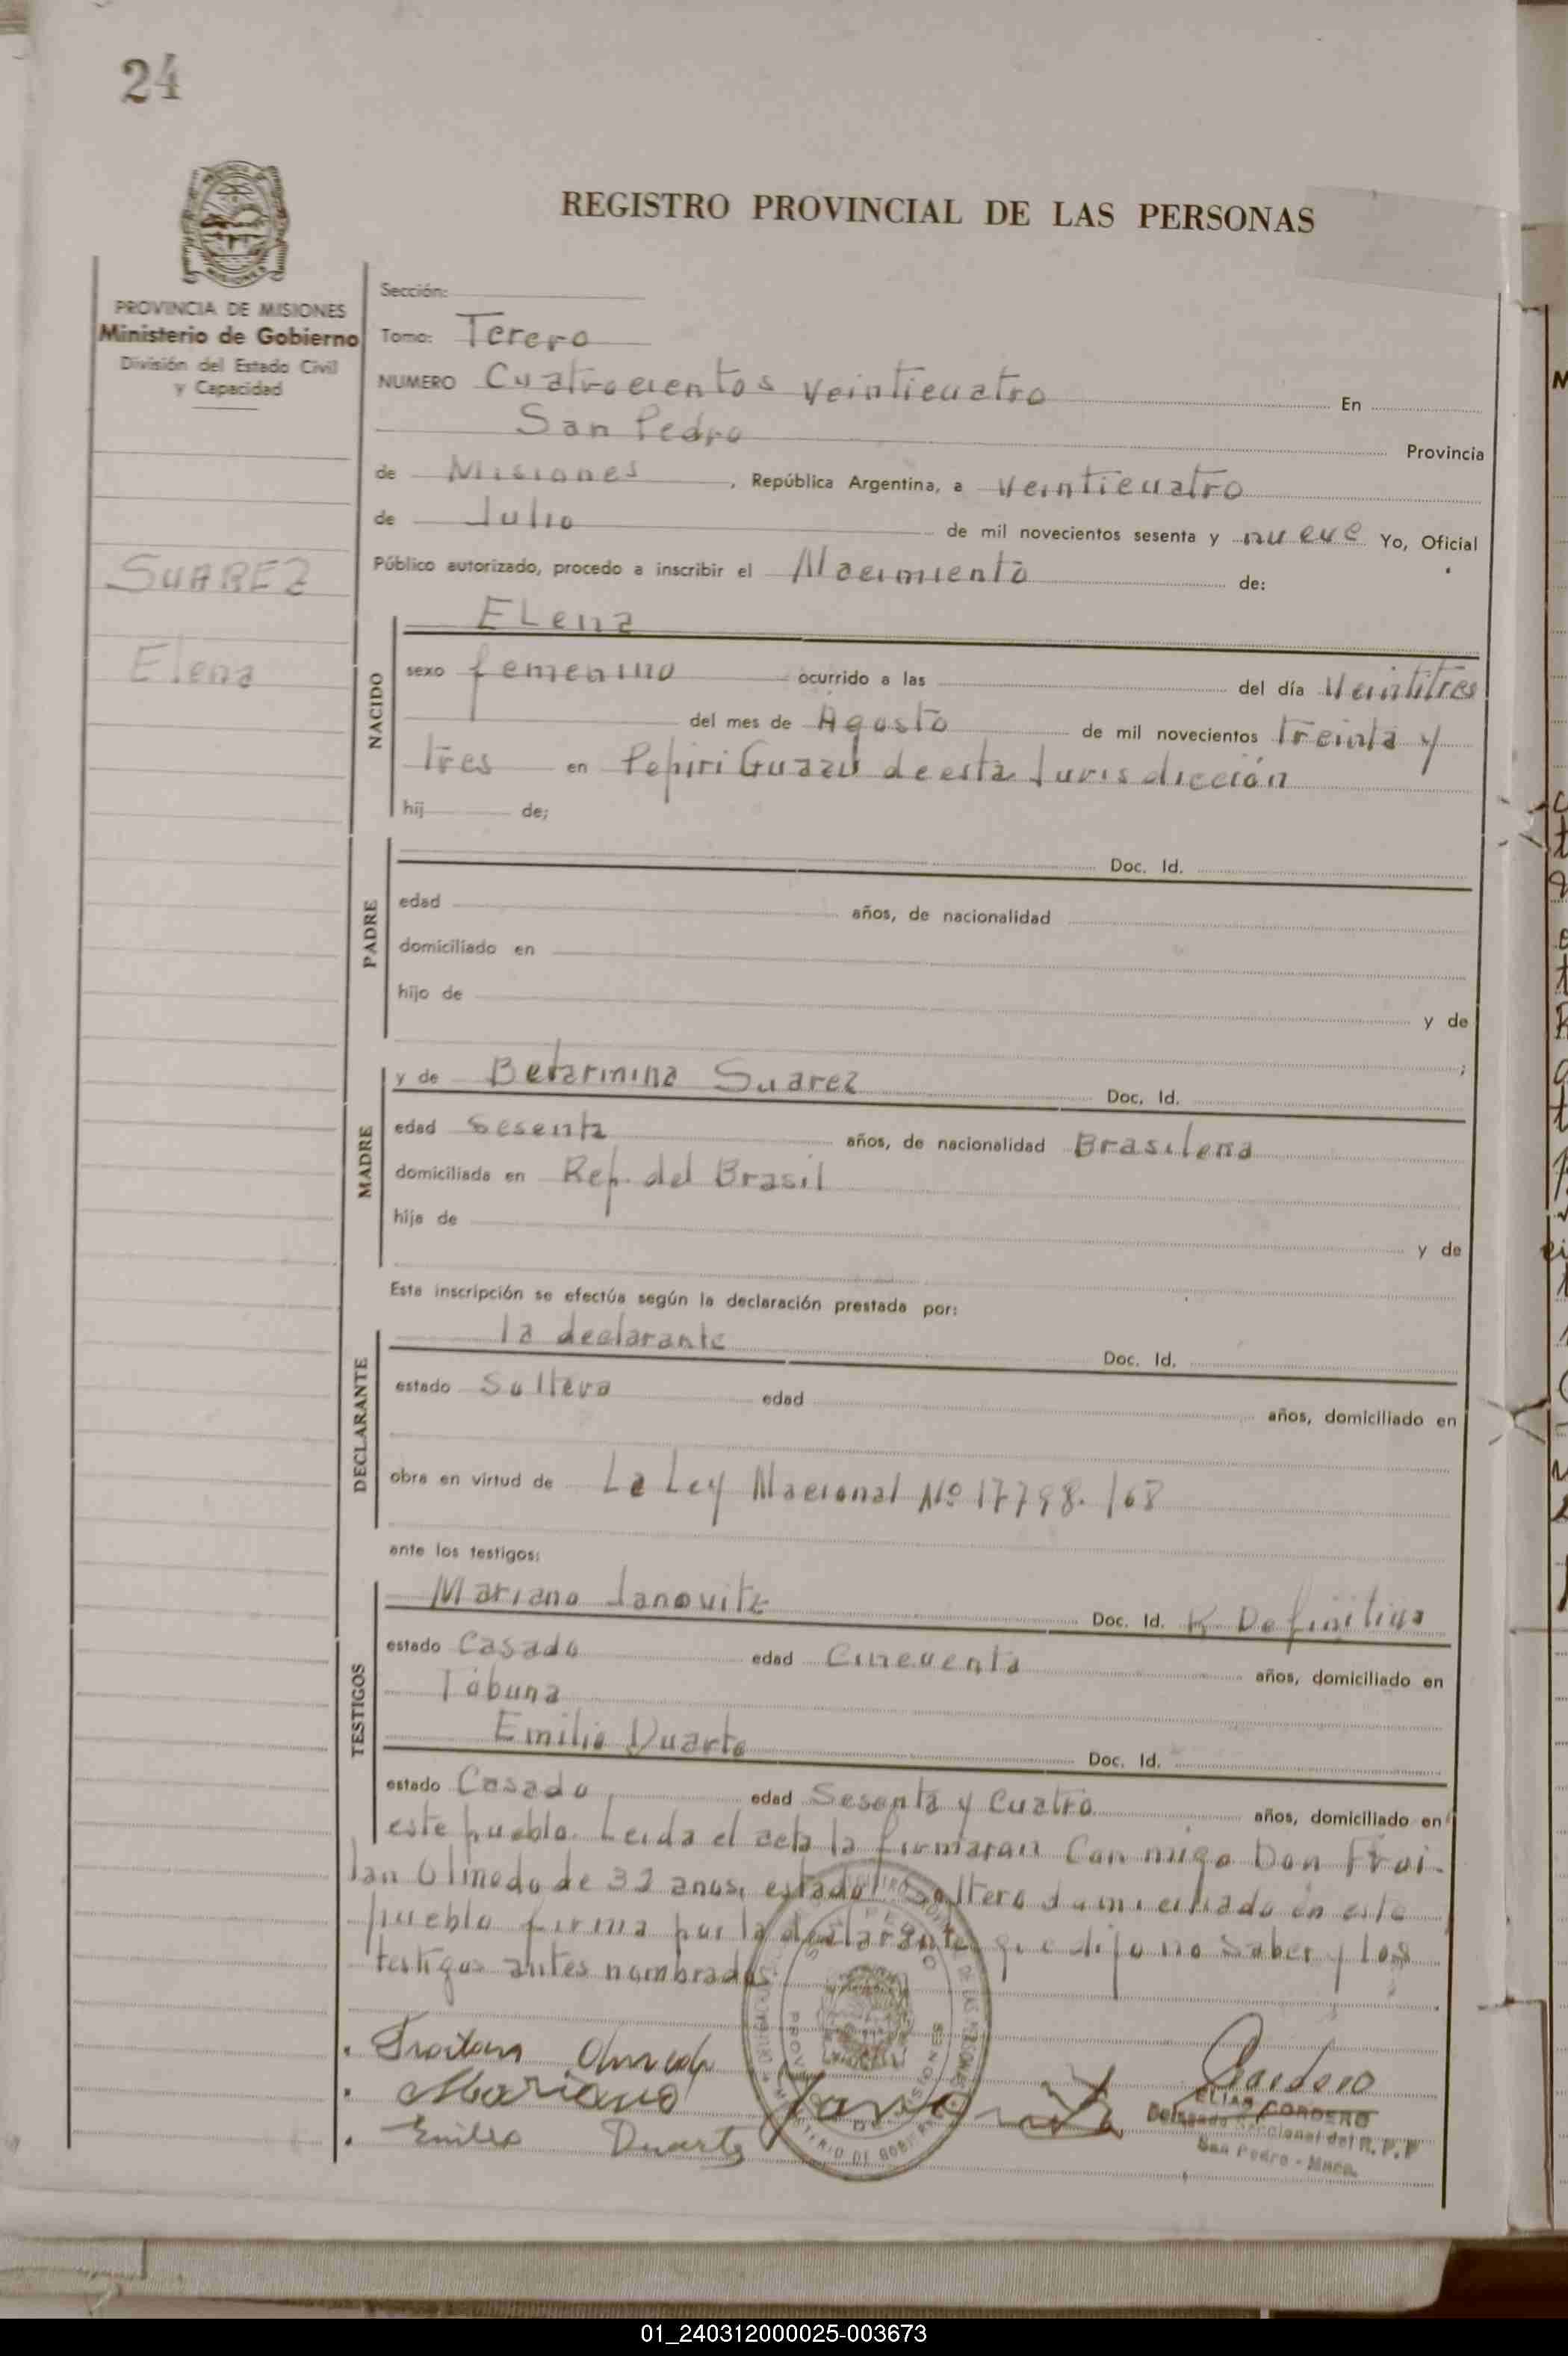 24
REGISTRO PROVINCIAL DE LAS PERSONAS
PROVINCIA DE MISIONES
Ministerio de Gobierno
División del Estado Civil
y Capacidad
SUAREZ
Elena
Sección:
Tomo: Terero
NUMERO Cuatrocientos Veinticuatro En
San Pedro Provincia
de Misiones, República Argentina, a Veinticuatro
de Julio de mil novecientos sesenta y nueve Yo, Oficial
Público autorizado, procedo a inscribir el Nacimiento de:
NACIDO
ELena
sexo femenino ocurrido a las del día Veintitres
del mes de Agosto de mil novecientos Treinta y
Tres en Pepiri Guazú de esta Jurisdicción
hij de;
PADRE
Doc. Id.
edad años, de nacionalidad
domiciliado en
hijo de y de
;
MADRE
y de Betarmina Suarez Doc. Id.
edad Sesenta años, de nacionalidad Brasilena
domiciliada en Rep. del Brasil
hija de y de
Esta inscripción se efectúa según la declaración prestada por:
DECLARANTE
la declarante Doc. Id.
estado Soltera edad años, domiciliado en
obra en virtud de La Ley Nacional Nº 17798./68
ante los testigos:
TESTIGOS
Mariano Janovitz Doc. Id. K Definitiva
estado Casado edad Cincuenta años, domiciliado en
Tobuna
Emilio Duarte Doc. Id.
estado Casado edad Sesenta y Cuatro años, domiciliado en
este pueblo. Leida el acta la firmaran Con migo Don Froi-
lan Olmedo de 32 anos, estado Soltero domiciliado en este
pueblo firma por la declarante que dijo no Saber y Los
testigos antes nombrados
Froilan Olmedo
Mariano Janovitz
Emilio Duarte
Cordero
ELIAS CORDERO
Delegado Seccional del R. P. P
San Pedro - Mnes.
01_240312000025-003673